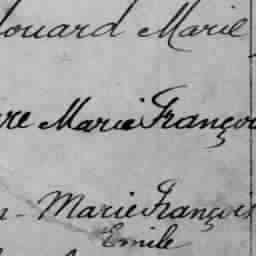 douard Marie
re Marie Françoi
n- Marie François
Emile